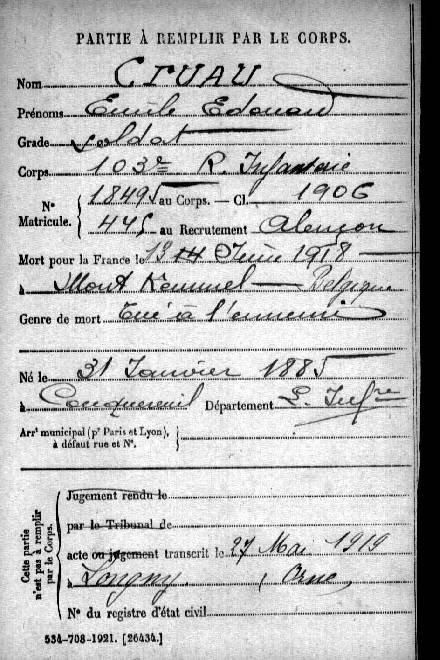 PARTIE À REMPLIR PAR LE CORPS.
Nom CIVAU
Prénoms Emile Edouard
Grade soldat
Corps 103e R. Infanterie
N° Matricule. { 18495 au Corps. — Cl. 1906
445 au Recrutement Alençon
Mort pour la France le 13 14 Juin 1918
à Mont Kemmel — Belgique
Genre de mort Tué à l'ennemi
Né le 31 Janvier 1885
à Conquereuil Département L. Infre
Arrt municipal (pr Paris et Lyon), à défaut rue et N°. {
Cette partie n'est pas à remplir par le Corps. {
Jugement rendu le
par le Tribunal de
acte ou jugement transcrit le 27 Mai 1919
à Longny (Orne)
N° du registre d'état civil
534-708-1921. [26434.]